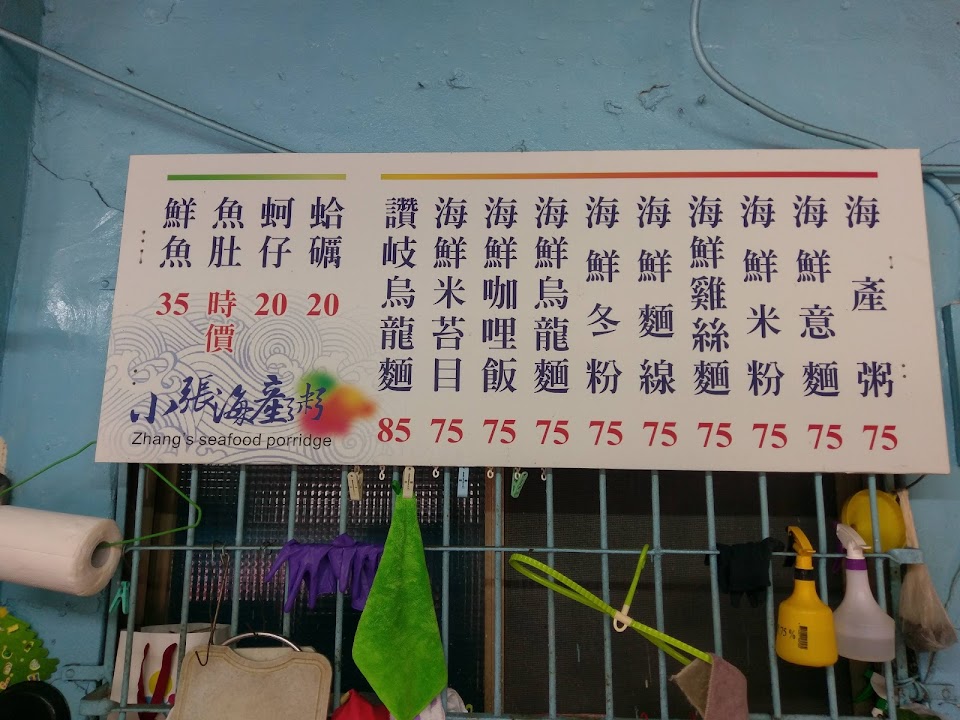 海產粥 75
海鮮意麵 75
海鮮米粉 75
海鮮雞絲麵 75
海鮮麵線 75
海鮮冬粉 75
海鮮烏龍麵 75
海鮮咖哩飯 75
海鮮米苔目 75
讚岐烏龍麵 85
蛤礪 20
蚵仔 20
魚肚 時價
鮮魚 35
小張海產粥
Zhang's seafood porridge
75%